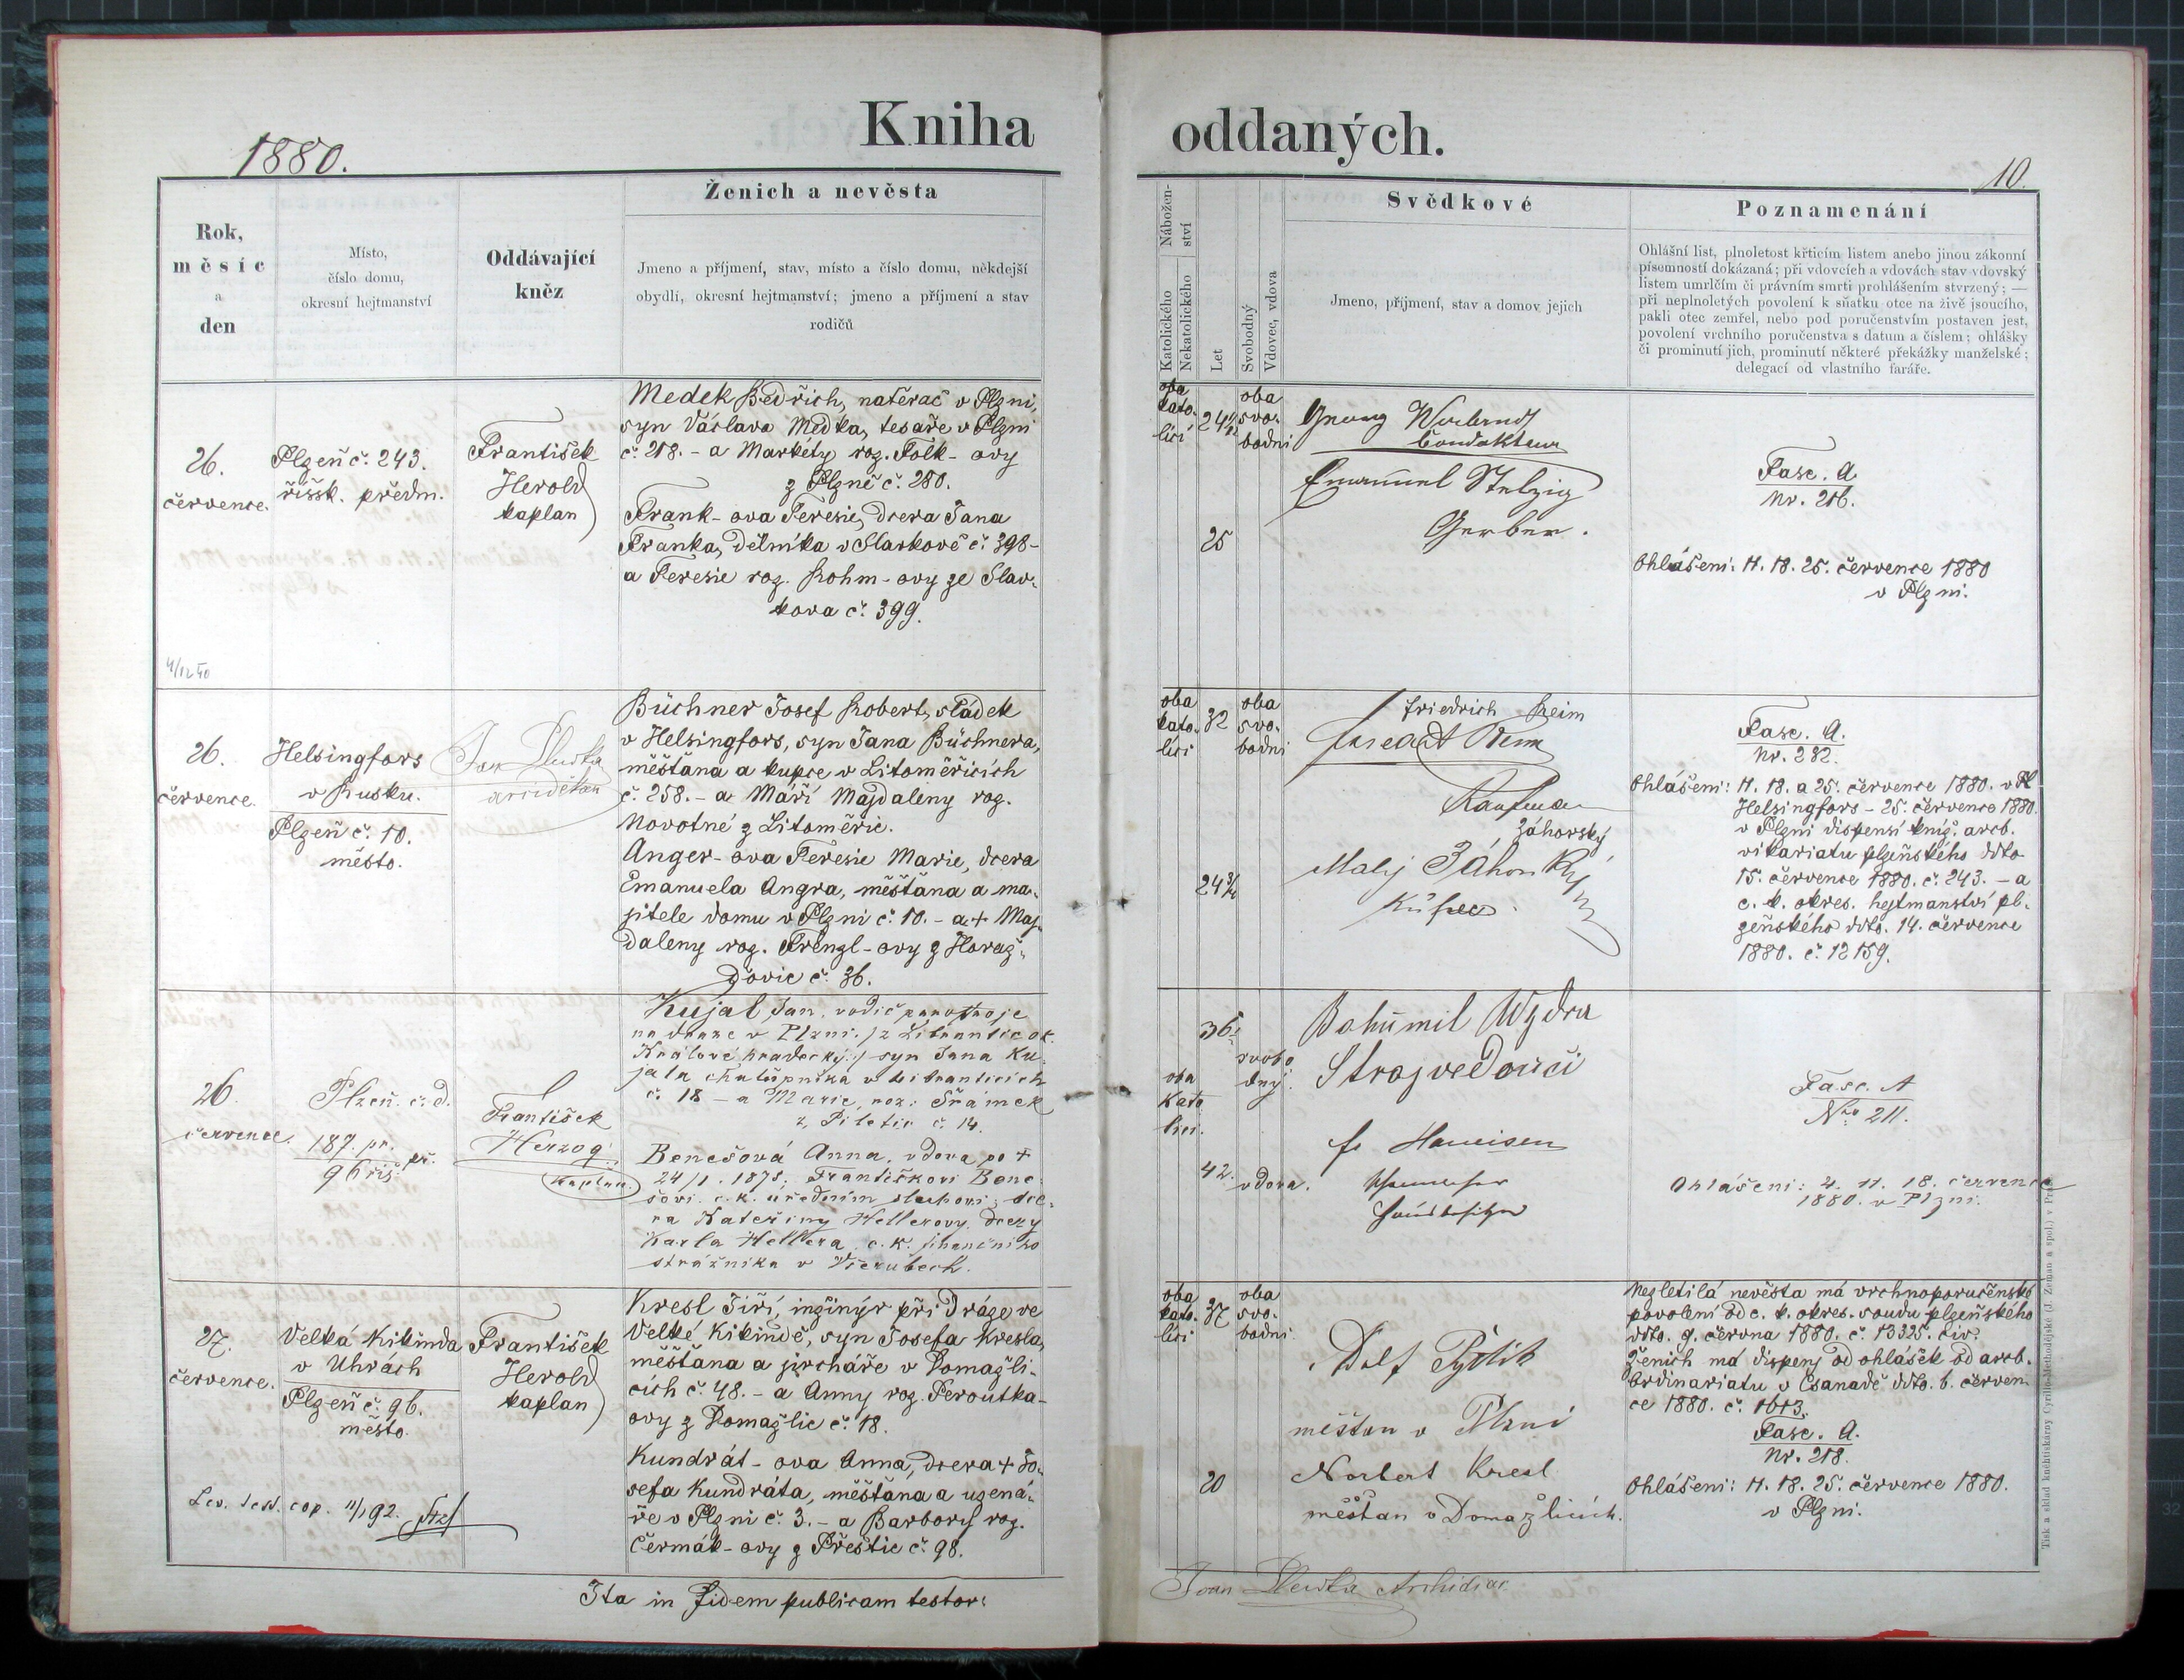 Kniha oddaných.
1880.
10.
Rok,
měsíc
a
den
Místo,
číslo domu,
okresní hejtmanství
Oddávající
kněz
Ženich a nevěsta
Jmeno a příjmení, stav, místo a číslo domu, někdejší
obydlí, okresní hejtmanství; jmeno a příjmení a stav
rodičů
Nábožen-
ství
Katolického
Nekatolického
Let
Svobodný
Vdovec, vdova
Svědkové
Jmeno, příjmení, stav a domov jejich
Poznamenání
Ohlášní list, plnoletost křticím listem anebo jinou zákonní
písemností dokázaná; při vdovcích a vdovách stav vdovský
listem umrlčím či právním smrti prohlášením stvrzený; —
při neplnoletých povolení k sňatku otce na živě jsoucího,
pakli otec zemřel, nebo pod poručenstvím postaven jest,
povolení vrchního poručenstva s datum a číslem; ohlášky
či prominutí jich, prominutí některé překážky manželské;
delegací od vlastního faráře.
26.
července.
Plzeň č. 243.
říšsk. předm.
František
Herold
kaplan
Medek Bedřich, natěrač v Plzni,
syn Václava Medka, tesaře v Plzni
č. 218. - a Markéty roz. Folk- ovy
z Plzně č. 280.
Frank- ova Teresie, dcera Jana
Franka, dělníka v Slavkově č. 398-
a Teresie roz. Rohm- ovy ze Slav-
kova č. 399.
oba
kato-
lící
24
25
oba
svo-
bodni
Condukteur
Emanuel Stelzig
Gerber.
Fasc. A.
Nr. 216.
Ohlášeni: 11. 18. 25. července 1880
v Plzni.
26.
července.
Helsingfors
v Rusku.
Plzeň č. 10.
město.
arciděkan
Büchner Josef Robert, sládek
v Helsingfors, syn Jana Büchnera,
měšťana a kupce v Litoměřicích
č. 258. - a Máří Majdaleny roz.
Novotné z Litoměřic.
Anger- ova Teresie Marie, dcera
Emanuela Angra, měšťana a ma-
jitele domu v Plzni č. 10. - a + Maj-
daleny roz. Frenzl- ovy z Horaž-
ďovic č. 36.
oba
kato-
líci
32
24 3/4
oba
svo-
bodni
Friedrich Reim
Kaufman
Záhorský
Fasc. A.
Nr. 232.
Ohlášeni: 11. 18. a 25. července 1880. v Pl
Helsingfors - 25. července 1880.
v Plzni dispensí kníž. arcb.
vikariatu plzeňského ddto
15. července 1880. č. 243. - a
c. k. okres. hejtmanství pl-
zeňského ddto. 14. července
1880. č. 12159.
26
července.
Plzeň. č. d.
187. pr.
96 řiš. př.
František
Herzog,
kaplan.
Kujal Jan, vodič parostroje
na dráze v Plzni.
Králové hradecký:) syn Jana Ku-
jala chalupníka v Libranticích
č. 18 - a Marie, roz: Šrámek
z Piletic č. 14.
Benešová Anna, vdova po +
24/1. 1875. Františkovi Bene-
šovi. c. k. úředním sluhovi; dce-
ra Kateřiny Hellerovy, dcery
Karla Hellera, c. k. finančního
strážníka v Všerubech.
36
42.
oba
kato
líci.
svobo
dný.
vdova.
Bohumil Wydra
Strojvedoucí
Fasc. A
Nro 211.
Ohlášeni: 4. 11. 18. července
1880. v Plzni.
27.
července.
Velká Kikinda
v Uhrách
Plzeň č. 96.
město.
František
Herold
kaplan
Kresl Jiří, inžinýr při dráze ve
Velké Kikindě, syn Josefa Kresla,
měšťana a jircháře v Domažli-
cích č. 48. - a Anny roz. Peroutka-
ovy z Domažlic č. 18.
Kundrát- ova Anna, dcera + Jo-
sefa Kundráta, měšťana a uzená-
ře v Plzni č. 3. - a Barbory roz.
Čermák- ovy z Přeštic č. 98.
oba
kato-
líci
37
20
oba
svo-
bodni
měšťan v Plzni
Norbert Kresl
měšťan v Domažlicích.
Nezletilá nevěsta má vrchnoporučenské
povolení od c. k. okres. soudu plzeňského
ddto. 9. června 1880. č. 13325. civ.
Ženich má dispens od ohlášek od arcb.
Ordinariatu v Csanadě ddto. 6. červen-
ce 1880. č. 1613.
Fasc. A.
Nr. 218.
Ohlášeni: 11. 18. 25. července 1880.
v Plzni.
Ita in fidem publicam testor:
Tisk a sklad knihtiskárny Cyrillo-Methodějské (J. Zeman a spol.) v Praze